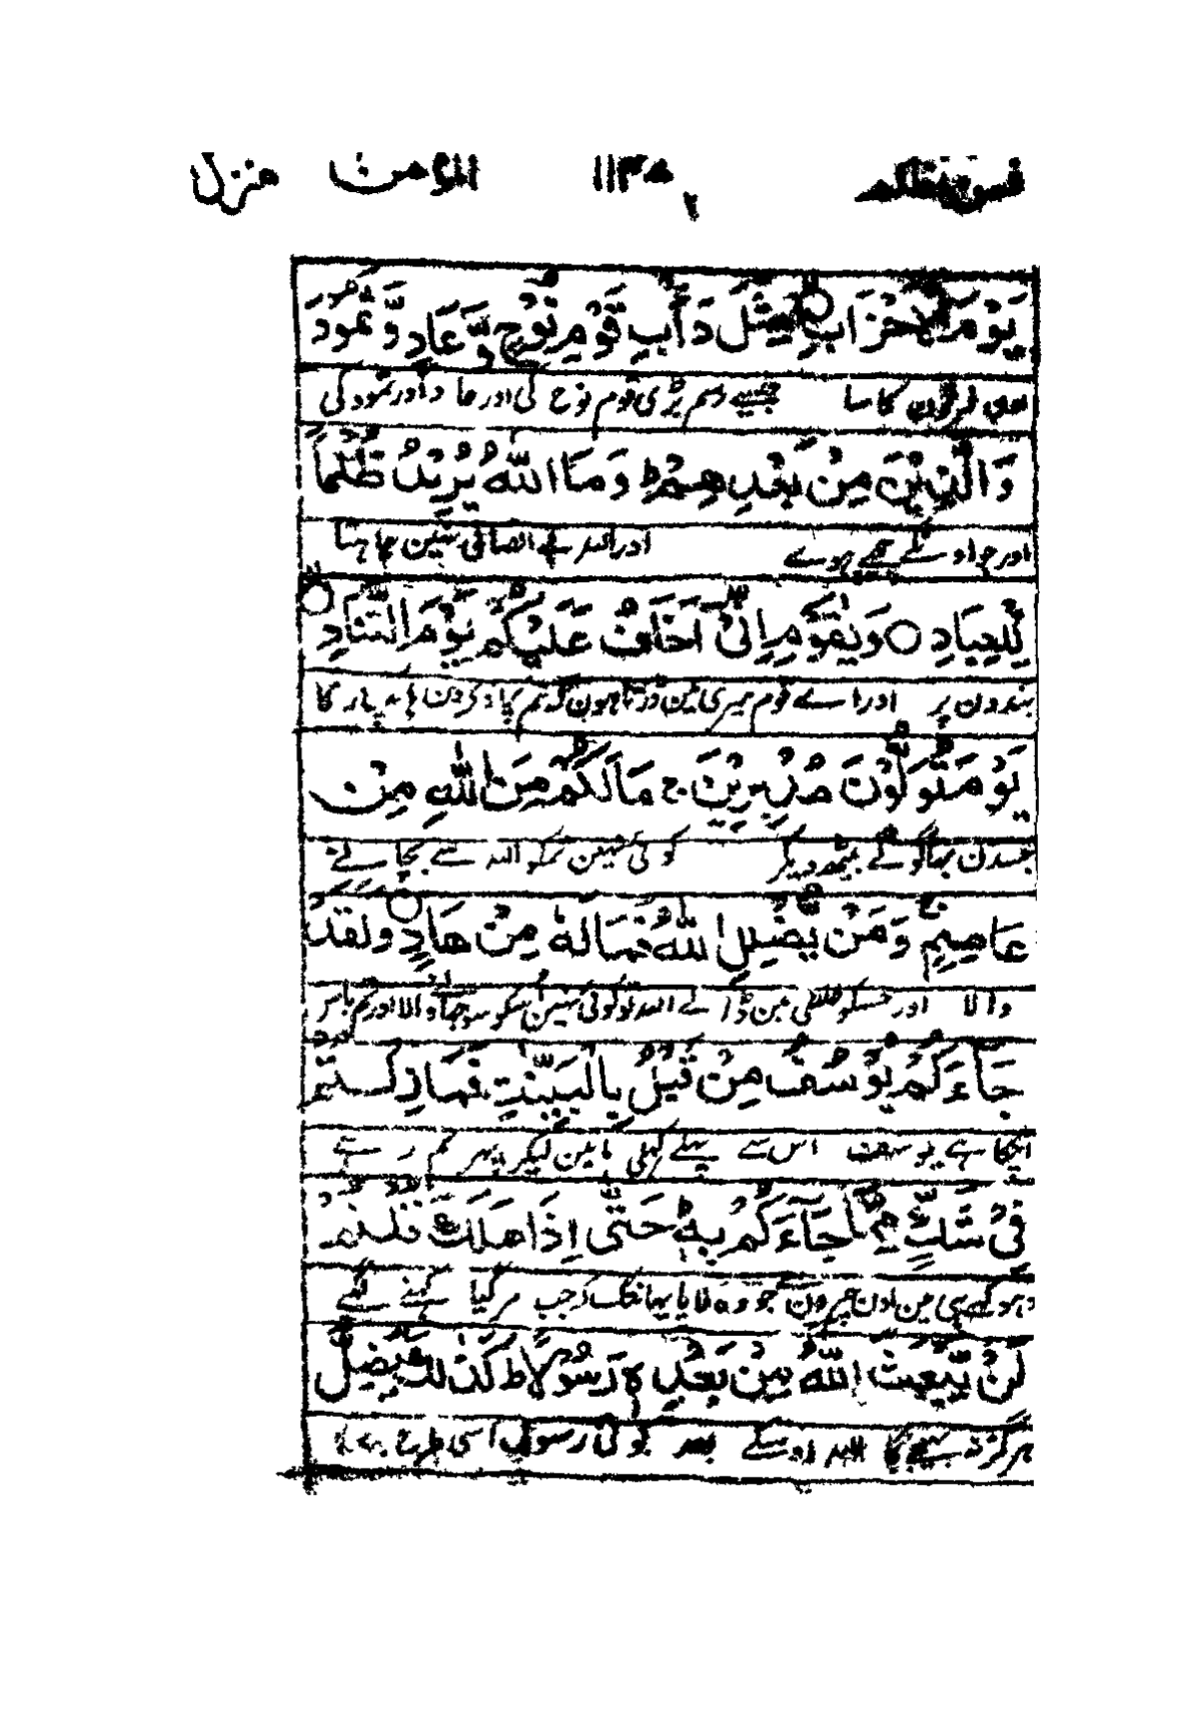 فمن اظلم ١١٣٨ المؤمن منزل
٢
يَوْمِ الْاَحْزَابِ ○ مِثْلَ دَاْبِ قَوْمِ نُوْحٍ وَّعَادٍ وَّثَمُوْدَ
فرقون کا سا جیسے رسم پڑی قوم نوح کی اور عاد اور ثمود کی
وَالَّذِيْنَ مِنْۢ بَعْدِهِمْ ؕ وَمَا اللّٰهُ يُرِيْدُ ظُلْمًا
اور جو اونکے پیچھے ہوے اور اللہ بے انصافی نہین چاہتا
لِّلْعِبَادِ ○ وَيٰقَوْمِ اِنِّيْٓ اَخَافُ عَلَيْكُمْ يَوْمَ التَّنَادِ ○
بندون پر اور اے قوم میری مین ڈرتا ہون کہ تم پر آوے دن ہانک پکار کا
يَوْمَ تُوَلُّوْنَ مُدْبِرِيْنَ ج مَا لَكُمْ مِّنَ اللّٰهِ مِنْ
جسدن بھاگو گے پیٹھ دیکر کوئی نہین تمکو اللہ سے بچانے
عَاصِمٍ ج وَمَنْ يُّضْلِلِ اللّٰهُ فَمَا لَهٗ مِنْ هَادٍ ○ وَلَقَدْ
والا اور جسکو غلطی مین ڈالے اللہ تو کوئی نہین اسکو سوجھانے والا اور تم پاس
جَآءَكُمْ يُوْسُفُ مِنْ قَبْلُ بِالْبَيِّنٰتِ فَمَا زِلْتُمْ
آچکا ہے یوسف اس سے پہلے کھلی باتین لیکر پھر تم رہے
فِيْ شَكٍّ مِّمَّا جَآءَكُمْ بِهٖ ؕ حَتّٰٓى اِذَا هَلَكَ قُلْتُمْ
دھوکے ہی مین اون چیزون سے جو وہ لایا یہانتک کہ جب مر گیا کہنے لگے
لَنْ يَّبْعَثَ اللّٰهُ مِنْۢ بَعْدِهٖ رَسُوْلًا ؕ كَذٰلِكَ يُضِلُّ
ہرگز نہ بھیجے گا اللہ اوسکے بعد کوئی رسول اسی طرح